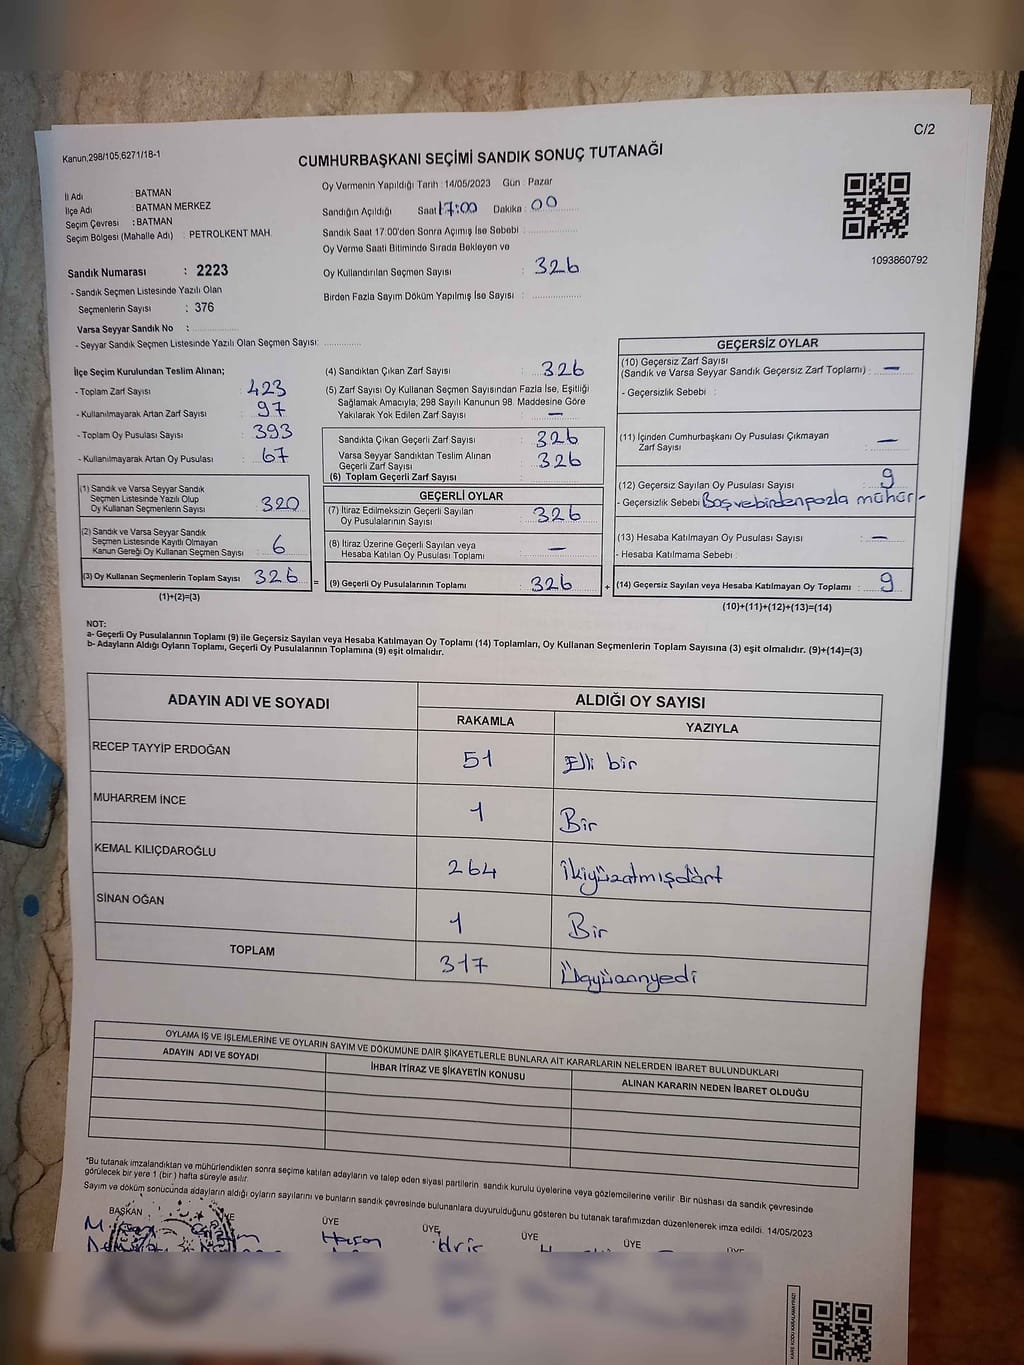 C/2
Kanun,298/105,6271/18-1
CUMHURBAŞKANI SEÇİMİ SANDIK SONUÇ TUTANAĞI
İl Adı : BATMAN
İlçe Adı : BATMAN MERKEZ
Seçim Çevresi : BATMAN
Seçim Bölgesi (Mahalle Adı) : PETROLKENT MAH.
Sandık Numarası : 2223
- Sandık Seçmen Listesinde Yazılı Olan
Seçmenlerin Sayısı : 376
Varsa Seyyar Sandık No :
- Seyyar Sandık Seçmen Listesinde Yazılı Olan Seçmen Sayısı:
Oy Vermenin Yapıldığı Tarih : 14/05/2023 Gün : Pazar
Sandığın Açıldığı Saat 17:00 Dakika : 00
Sandık Saat 17.00'den Sonra Açımış İse Sebebi :
Oy Verme Saati Bitiminde Sırada Bekleyen ve
Oy Kullandırılan Seçmen Sayısı : 326
Birden Fazla Sayım Döküm Yapılmış İse Sayısı :
1093860792
İlçe Seçim Kurulundan Teslim Alınan;
- Toplam Zarf Sayısı : 423
- Kullanılmayarak Artan Zarf Sayısı : 97
- Toplam Oy Pusulası Sayısı : 393
- Kullanılmayarak Artan Oy Pusulası : 67
(1) Sandık ve Varsa Seyyar Sandık
Seçmen Listesinde Yazılı Olup
Oy Kullanan Seçmenlerin Sayısı : 320
(2) Sandık ve Varsa Seyyar Sandık
Seçmen Listesinde Kayıtlı Olmayan
Kanun Gereği Oy Kullanan Seçmen Sayısı : 6
(3) Oy Kullanan Seçmenlerin Toplam Sayısı : 326 =
(1)+(2)=(3)
(4) Sandıktan Çıkan Zarf Sayısı : 326
(5) Zarf Sayısı Oy Kullanan Seçmen Sayısından Fazla İse, Eşitliği
Sağlamak Amacıyla; 298 Sayılı Kanunun 98. Maddesine Göre
Yakılarak Yok Edilen Zarf Sayısı : —
Sandıkta Çıkan Geçerli Zarf Sayısı : 326
Varsa Seyyar Sandıktan Teslim Alınan
Geçerli Zarf Sayısı : 326
(6) Toplam Geçerli Zarf Sayısı :
GEÇERLİ OYLAR
(7) İtiraz Edilmeksizin Geçerli Sayılan
Oy Pusulalarının Sayısı : 326
(8) İtiraz Üzerine Geçerli Sayılan veya
Hesaba Katılan Oy Pusulası Toplamı : —
(9) Geçerli Oy Pusulalarının Toplamı : 326 +
GEÇERSİZ OYLAR
(10) Geçersiz Zarf Sayısı
(Sandık ve Varsa Seyyar Sandık Geçersiz Zarf Toplamı) : —
- Geçersizlik Sebebi :
(11) İçinden Cumhurbaşkanı Oy Pusulası Çıkmayan
Zarf Sayısı : —
(12) Geçersiz Sayılan Oy Pusulası Sayısı : 9
- Geçersizlik Sebebi Boş ve birden pazla mühür -
(13) Hesaba Katılmayan Oy Pusulası Sayısı : —
- Hesaba Katılmama Sebebi :
(14) Geçersiz Sayılan veya Hesaba Katılmayan Oy Toplamı : 9
(10)+(11)+(12)+(13)=(14)
NOT:
a- Geçerli Oy Pusulalarının Toplamı (9) ile Geçersiz Sayılan veya Hesaba Katılmayan Oy Toplamı (14) Toplamları, Oy Kullanan Seçmenlerin Toplam Sayısına (3) eşit olmalıdır. (9)+(14)=(3)
b- Adayların Aldığı Oyların Toplamı, Geçerli Oy Pusulalarının Toplamına (9) eşit olmalıdır.
ADAYIN ADI VE SOYADI ALDIĞI OY SAYISI
RAKAMLA YAZIYLA
RECEP TAYYİP ERDOĞAN 51 Elli bir
MUHARREM İNCE 1 Bir
KEMAL KILIÇDAROĞLU 264 İkiyüzatmışdört
SİNAN OĞAN 1 Bir
TOPLAM 317 Üçyüzonyedi
OYLAMA İŞ VE İŞLEMLERİNE VE OYLARIN SAYIM VE DÖKÜMÜNE DAİR ŞİKAYETLERLE BUNLARA AİT KARARLARIN NELERDEN İBARET BULUNDUKLARI
ADAYIN ADI VE SOYADI İHBAR İTİRAZ VE ŞİKAYETİN KONUSU ALINAN KARARIN NEDEN İBARET OLDUĞU
*Bu tutanak imzalandıktan ve mühürlendikten sonra seçime katılan adayların ve talep eden siyasi partilerin sandık kurulu üyelerine veya gözlemcilerine verilir. Bir nüshası da sandık çevresinde
görülecek bir yere 1 (bir) hafta süreyle asılır.
Sayım ve döküm sonucunda adayların aldığı oyların sayılarını ve bunların sandık çevresinde bulunanlara duyurulduğunu gösteren bu tutanak tarafımızdan düzenlenerek imza edildi. 14/05/2023
BAŞKAN ÜYE ÜYE ÜYE ÜYE ÜYE
Hasan İdris